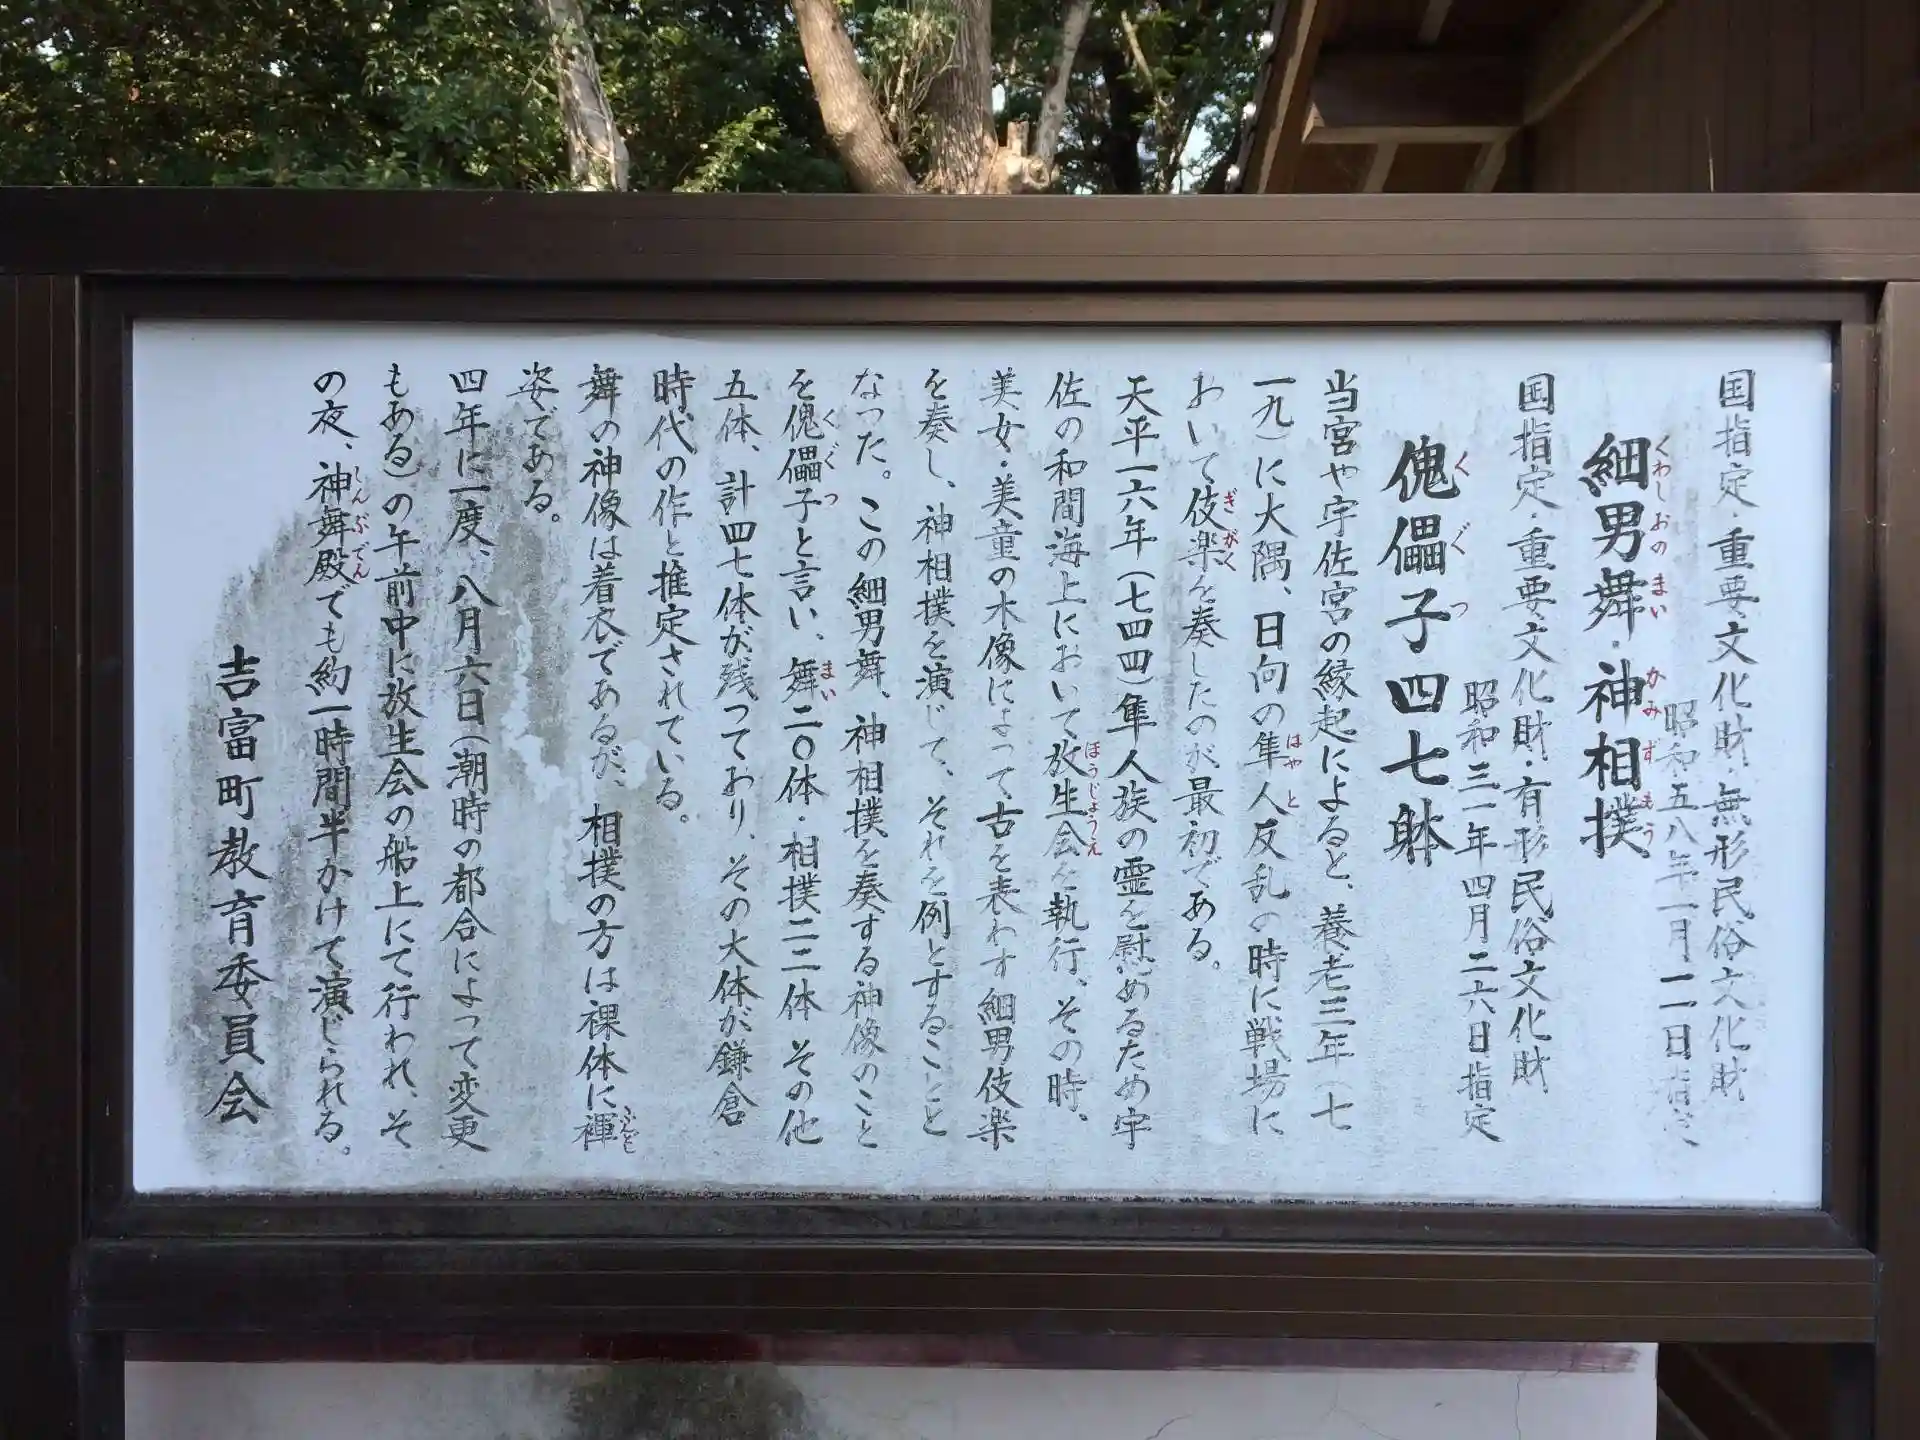 国指定・重要文化財・無形民俗文化財
昭和五八年一月一一日指定
細男舞・神相撲
くわしおのまい かみずもう
国指定・重要文化財・有形民俗文化財
昭和三一年四月二六日指定
傀儡子四七躰
くぐつ
当宮や宇佐宮の縁起によると、養老三年(七
一九)に大隅、日向の隼人反乱の時に戦場に
はやと
おいて伎楽を奏したのが最初である。
ぎがく
天平一六年(七四四)隼人族の霊を慰めるため宇
佐の和間海上において放生会を執行、その時、
ほうじょううえ
美女・美童の木像によって古を表わす細男伎楽
を奏し、神相撲を演じて、それを例とすることと
なった。この細男舞、神相撲を奏する神像のこと
を傀儡子と言い、舞二〇体・相撲二二体 その他
くぐつ まい
五体、計四七体が残っており、その大体が鎌倉
時代の作と推定されている。
舞の神像は着衣であるが、相撲の方は裸体に褌
ふんどし
姿である。
四年に一度、八月六日(潮時の都合によって変更
もある)の午前中に放生会の船上にて行われ、そ
の夜、神舞殿でも約一時間半かけて演じられる。
しんぶでん
吉富町教育委員会